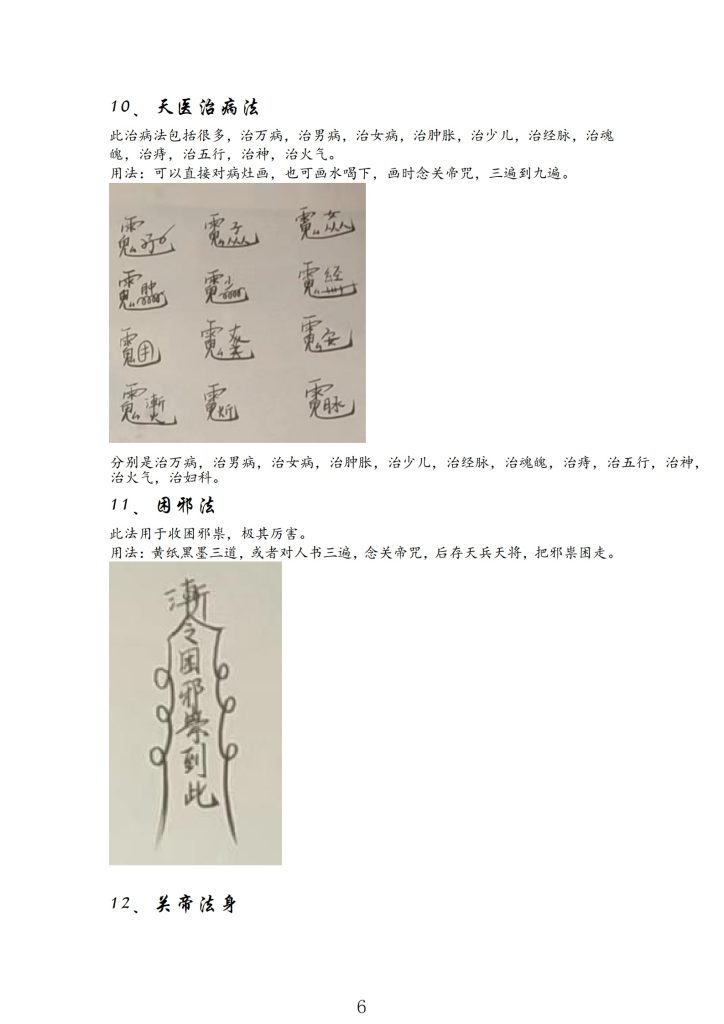 10、天医治病法
此治病法包括很多，治万病，治男病，治女病，治肿胀，治少儿，治经脉，治魂
魄，治痔，治五行，治神，治火气。
用法：可以直接对病灶画，也可画水喝下，画时念关帝咒，三遍到九遍。
子
女
肿
少
经
安
脉
分别是治万病，治男病，治女病，治肿胀，治少儿，治经脉，治魂魄，治痔，治五行，治神，
治火气，治妇科。
11、困邪法
此法用于收困邪祟，极其厉害。
用法：黄纸黑墨三道，或者对人书三遍，念关帝咒，后存天兵天将，把邪祟困走。
令
困
邪
祟
到
此
12、关帝法身
6